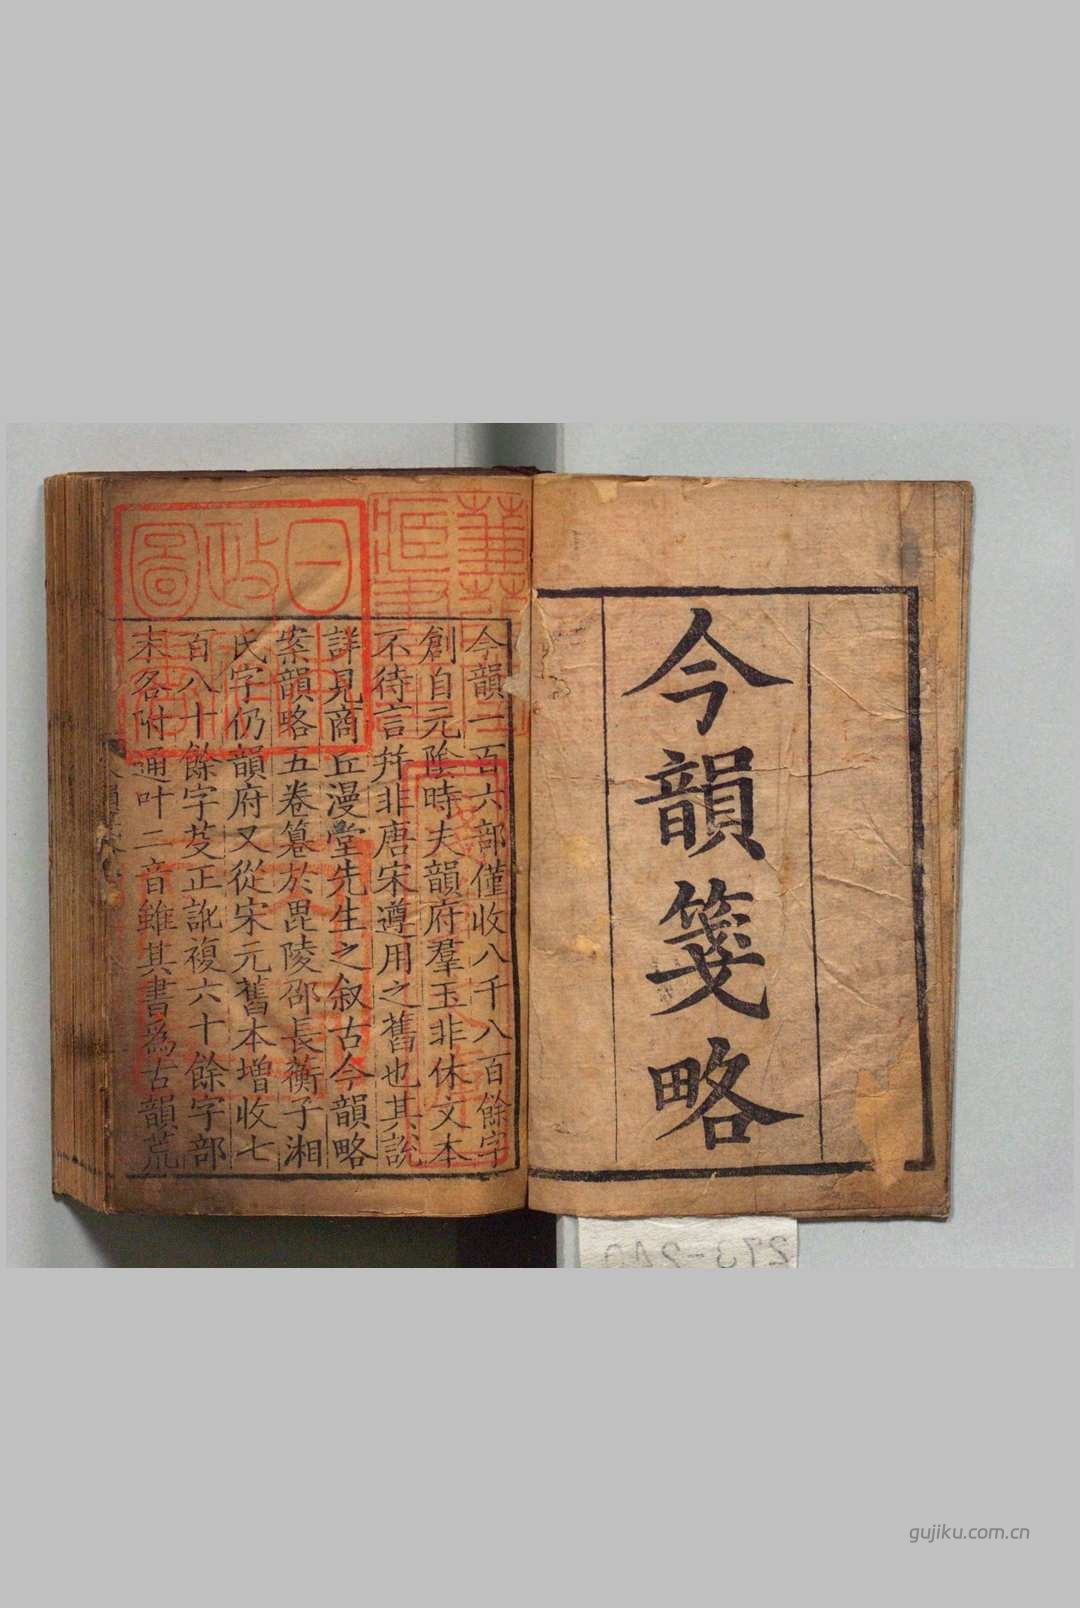 今韻箋略
今韻一百六部僅收八千八百餘字
創自元陰時夫韻府羣玉非休文本
不待言幷非唐宋遵用之舊也其說
詳見商丘漫堂先生之叙古今韻略
案韻略五卷篹於毘陵邵長蘅子湘
氏字仍韻府又從宋元舊本增收七
百八十餘字芟正訛複六十餘字部
末各附通叶二音雖其書爲古韻荒
日
政
圖
273-240
gujiku.com.cn